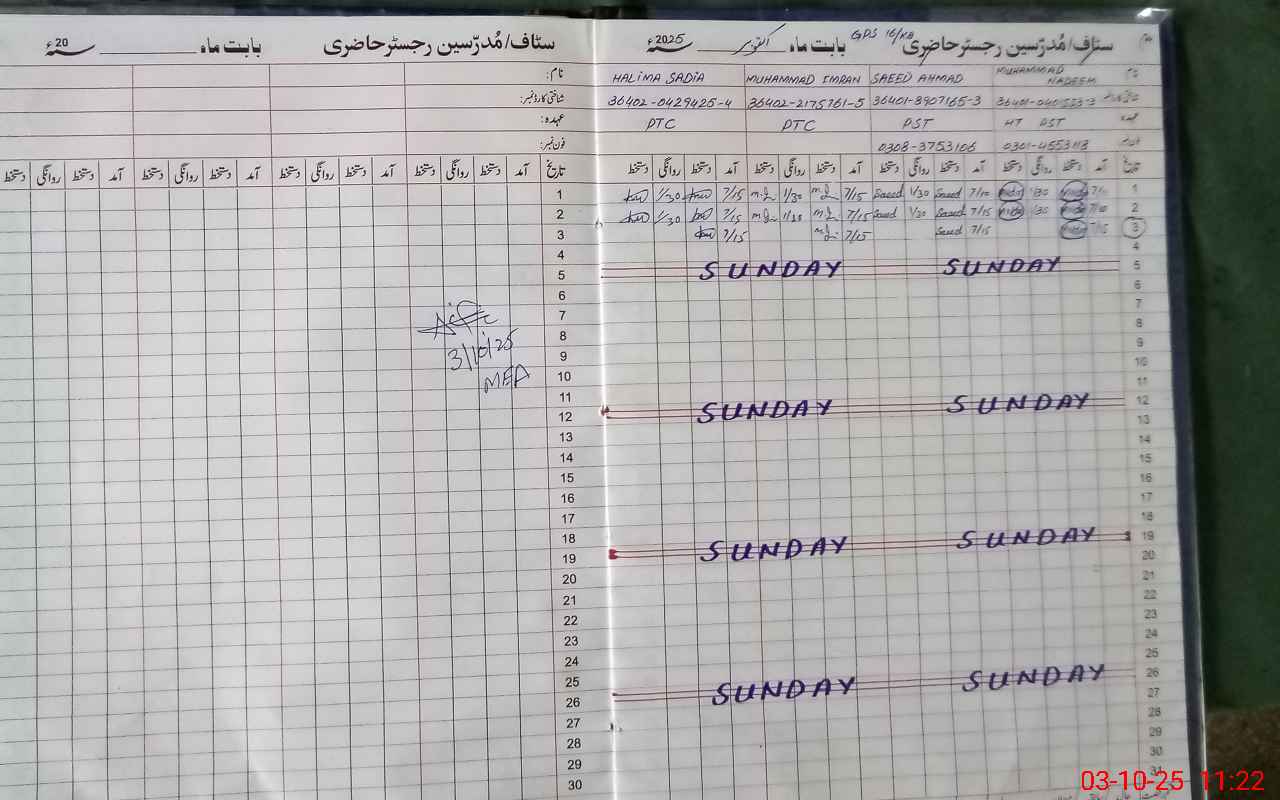 سٹاف/مُدرّسین رجسٹر حاضری بابت ماہ اکتوبر سنہ 2025ء
GPS 16/KB
نام: MUHAMMAD NADEEM SAEED AHMAD MUHAMMAD IMRAN HALIMA SADIA
شناختی کارڈ نمبر: 36401-3907165-3 36402-2175761-5 36402-0429425-4
عہدہ: HT PST PST PTC PTC
فون نمبر: 0301-4553118 0308-3753106
تاریخ آمد دستخط روانگی دستخط آمد دستخط روانگی دستخط آمد دستخط روانگی دستخط آمد دستخط روانگی دستخط
1 7/10 1/30 7/10 Saeed 1/30 Saeed 7/15 1/30 7/15 1/30
2 7/10 1/30 7/15 Saeed 1/30 Saeed 7/15 1/30 7/15 1/30
3 7/15 7/15 Saeed 7/15 7/15
4
5 SUNDAY SUNDAY
6
7
8
9
10
11
12 SUNDAY SUNDAY
13
14
15
16
17
18
19 SUNDAY SUNDAY
20
21
22
23
24
25
26 SUNDAY SUNDAY
27
28
29
30
31
سٹاف/مُدرّسین رجسٹر حاضری بابت ماہ سنہ 20ء
نام:
شناختی کارڈ نمبر:
عہدہ:
فون نمبر:
تاریخ آمد دستخط روانگی دستخط آمد دستخط روانگی دستخط آمد دستخط روانگی دستخط آمد دستخط روانگی دستخط
1
2
3
4
5
6
7
8
9
10
11
12
13
14
15
16
17
18
19
20
21
22
23
24
25
26
27
28
29
30
3/10/25
MEA
03-10-25 11:22